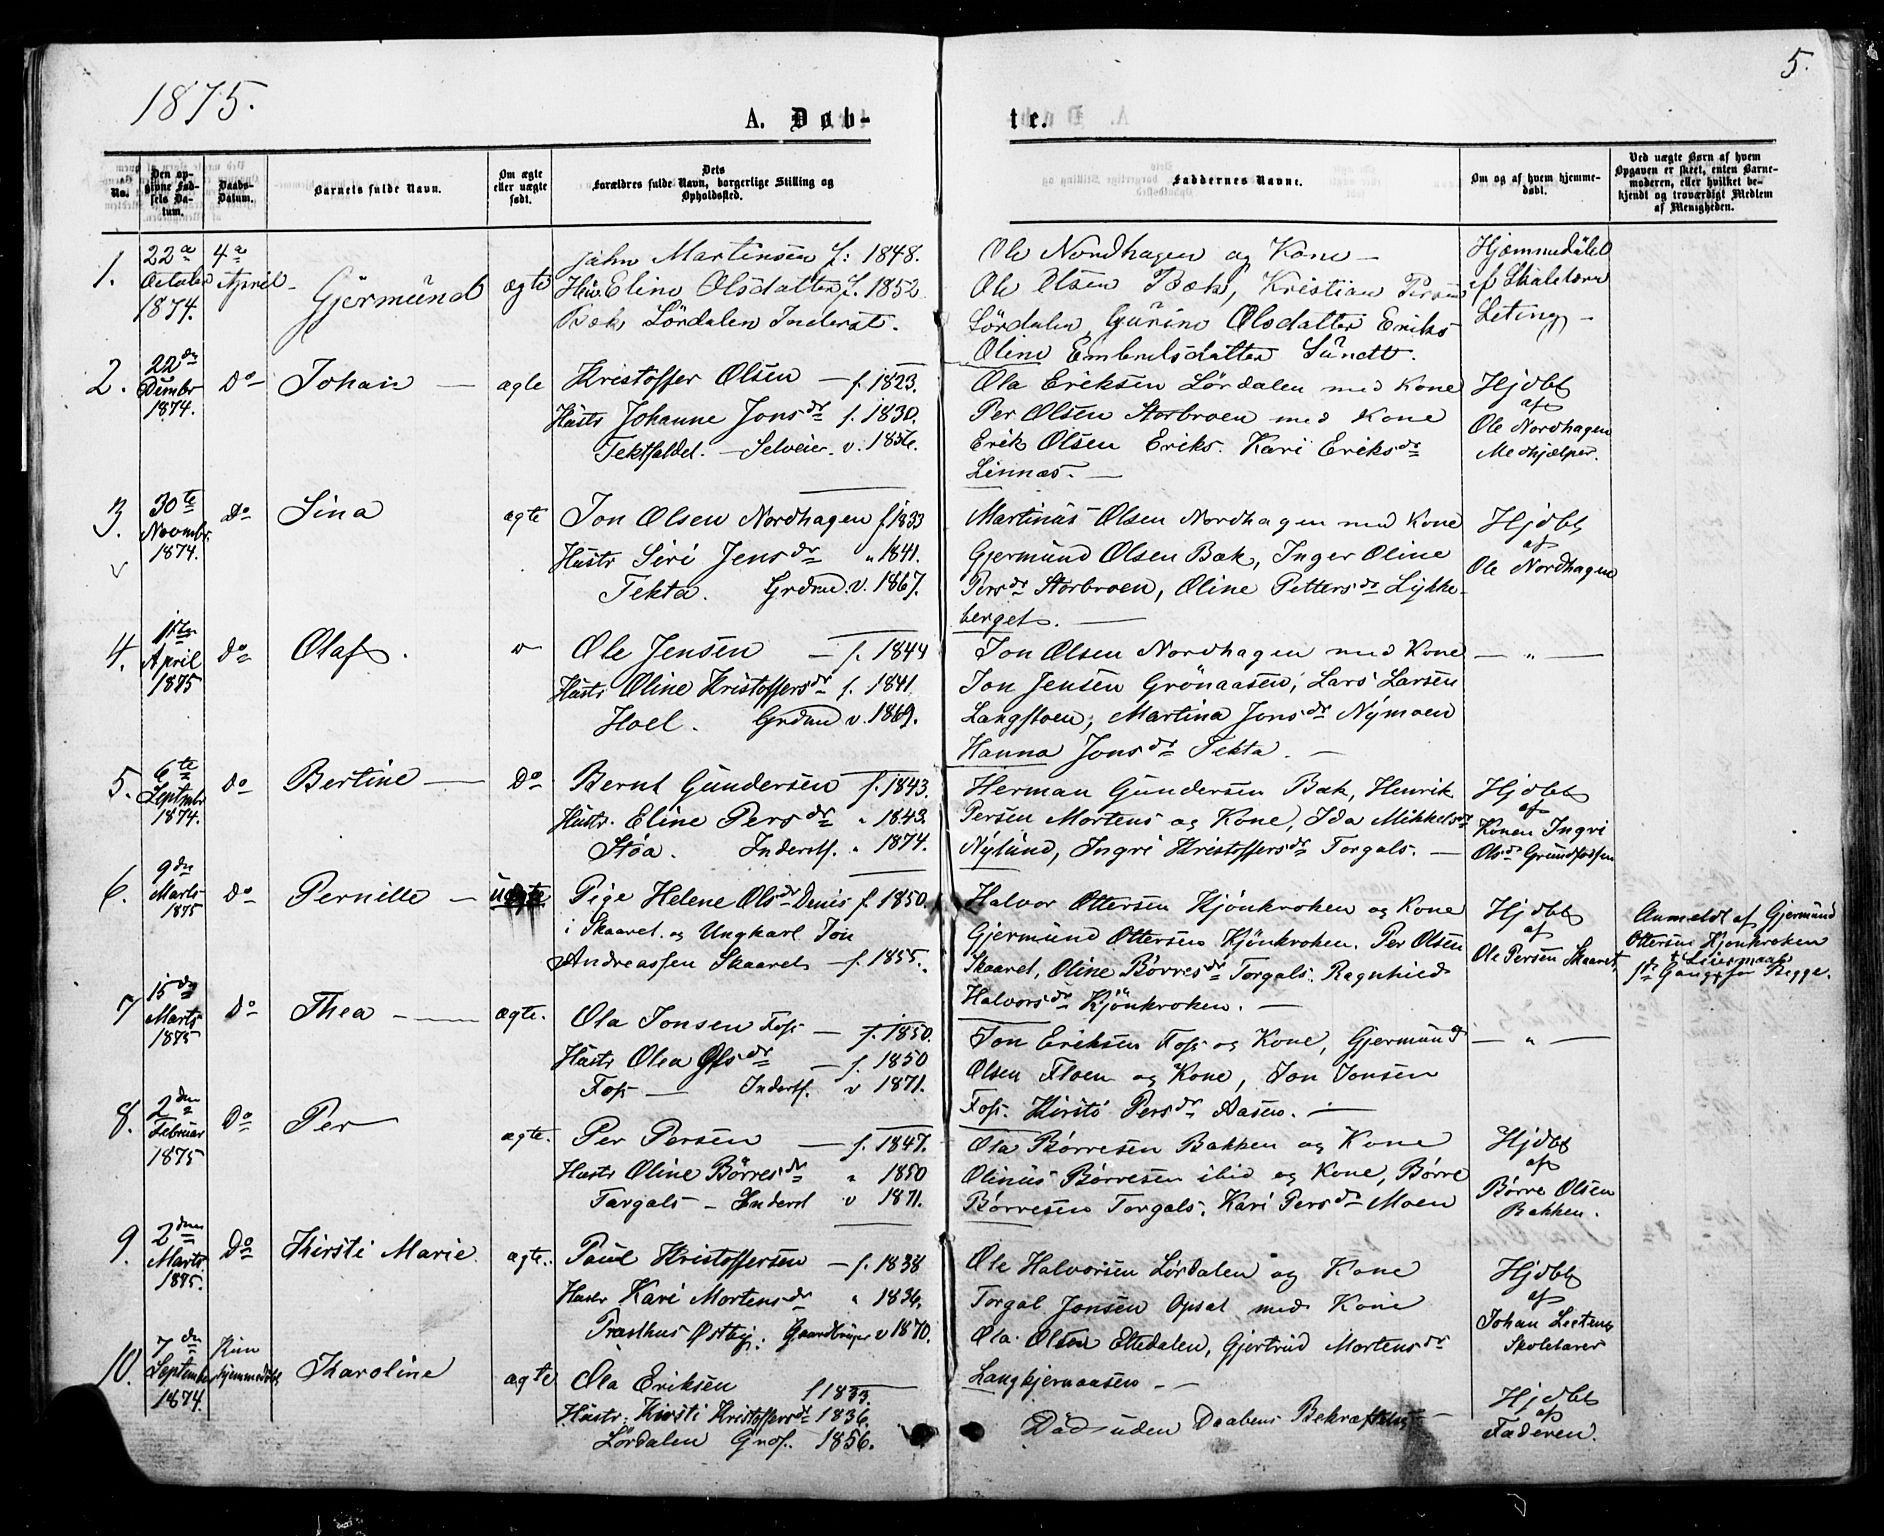 1875.
5.
A. Døb-
te.
No.
Den op-
givne Fød-
sels Da-
tum.
Daabs-
Datum.
Barnets fulde Navn.
Om ægte
eller uægte
født.
Dets
Forældres fulde Navn, borgerlige Stilling og
Opholdssted.
Faddernes Navne.
Om og af hvem hjemme-
døbt.
Ved uægte Børn af hvem
Opgaven er skeet, enten Barne-
moderen, eller hvilket be-
kjendt og troværdigt Medlem
af Menigheden.
1.
22de
October
1874.
4de
April
Gjermund
ægte
John Martinsen f: 1848.
Eline Olsdatter f. 1852
Bæk Lördalen Inderst.
Ole Nordhagen og Kone —
Ole Olsen Bæk, Kristian
Lördalen, Gurine Olsdatter Eriks
Oline Embretsdatter Sundt.
Hjemmedöbt
af
2.
22de
1874.
Do
Johan —
ægte
Kristoffer Olsen — f. 1823.
Hustr Johanne Jonsdr f. 1830.
Selveier v. 1856.
Ola Eriksen Lördalen med Kone
Per Olsen Storbroen med Kone
Erik Olsen Eriks. Kari Eriksdr
Linnæs. —
Hjdbt
af
Ole Nordhagen
Medhjælper.
3.
30te
Novmbr.
1874.
Do
Sina
ægte
Jon Olsen Nordhagen f 1833
Hustr Siri Jensdr " 1841.
Tekta. Grdmd. v. 1867.
Martinus Olsen Nordhagen med Kone
Gjermund Olsen Bæk, Inger Oline
Persdr Storbroen, Oline Pettersdr Lykke-
berget. —
Hjdbt
af
Ole Nordhagen
4.
April
1875
Do
Olaf.
Ole Jensen — f. 1844
Hustr Oline Kristoffersdr f. 1841.
Hoel. Grdmd v. 1869.
Jon Olsen Nordhagen med Kone
Jon Jensen Grönaasen, Lars Larsen
Langfloen, Martina Jonsdr Nymoen
Hanna Jonsdr Tekta. —
— " —
5.
6te
Septmbr
1874.
Do
Bertine —
Do
Bernt Gundersen f. 1843.
Hustr. Eline Persdr " 1843
Stöa. Inderst. " 1874.
Herman Gundersen Bæk, Henrik
Persen Mortens og Kone, Ida Mikkelsdr
Nylund, Ingri Kristoffersdr Torgals. —
Hjdbt
af
Konen Ingri
Olsdr Grundfossen
6.
9de
Marts
1875
Do
Pernille —
uægte
Pige Helene Olsdr f. 1850.
i Skaaret og Ungkarl Jon
Andreassen Skaaret — f. 1855.
Halvor Ottersen Kjönkroken og Kone
Gjermund Ottersen Kjönkroken. Per Olsen
Skaaret, Oline Börresdr Torgals. Ragnhild
Halvorsdr Kjönkroken. —
Hjdbt
af
Ole Persen Skaaret,
Anmeldt af Gjermund
Ottersen Kjönkroken
1ste Gang for Begge.
7
15de
Marts
1875
Do
Thea —
ægte.
Ola Jonsen Foss — f. 1850.
Hustr Olea Olsdr — f. 1850
Foss — Inderst. v 1871.
Jon Eriksen Foss og Kone, Gjermund
Olsen Floen og Kone, Jon Jonsen
Foss. Kirsti Persdr Aasen. —
— " —
8.
2den
Februar
1875
Do
Per
ægte.
Per Persen — f. 1847.
Hustr Oline Börresdr " 1850
Torgals — Inderst v 1871.
Ola Börresen Bakken og Kone
Olinus Börresen ibid og Kone, Börre
Börresen Torgals. Kari Persdr Moen
Hjdbt
af
Börre Olsen
Bakken.
9.
2den
Marts
1875.
Do
Kirsti Marie
ægte.
Paul Kristoffersen — f. 1838
Hustr Kari Mortensdr " 1836.
Præsthus Östby. Gaardbruger v 1870.
Ole Halvorsen Lördalen og Kone
Torgal Jonsen Opsal med Kone
Ola Olsen Eltedalen, Gjertrud Mortensdr
Langkjernaasen —
Hjdbt
af
Johan
Skolelærer
10.
7de
September
1874.
Kun
hjemmedöbt
Karoline
ægte
Ola Eriksen f 1833.
Hustr. Kirsti Kristoffersdr 1836.
Lördalen 1856.
Död uden Daabens Bekræftelse —
Hjdbt
af
Faderen.